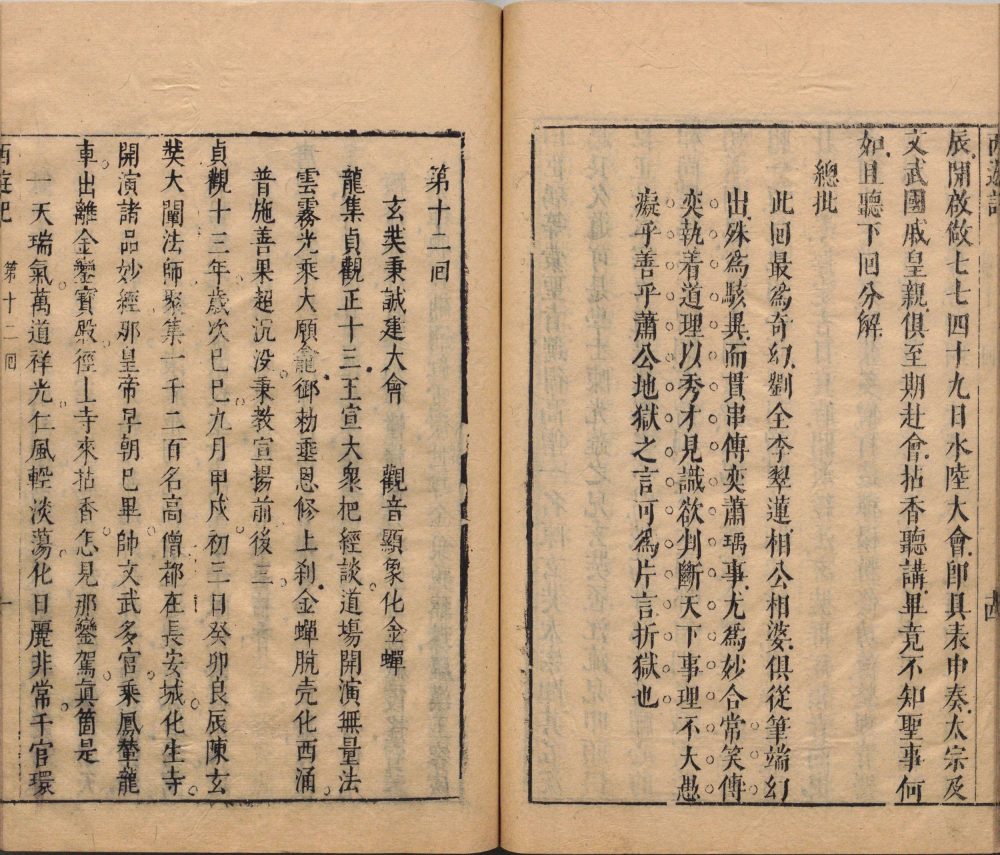 西遊記
辰開啟做七七四十九日水陸大會即具表申奏太宗及
文武國戚皇親俱至期赴會拈香聽講畢竟不知聖事何
如且聽下回分解
總批
此回最爲奇幻劉全李翠蓮相公相婆俱從筆端幻
出殊爲駭異而貫串傳奕蕭瑀事尤爲妙合常笑傳
奕執着道理以秀才見識欲判斷天下事理不大愚
癡乎善乎蕭公地獄之言可爲片言折獄也
第十二回
玄奘秉誠建大會 觀音顯象化金蟬
龍集貞觀正十三王宣大衆把經談道場開演無量法
雲霧光乘大願龕御勑垂恩修上刹金蟬脫壳化西涵
普施善果超沉没秉教宣揚前後三
貞觀十三年歲次巳巳九月甲戌初三日癸卯良辰陳玄
奘大闡法師聚集一千二百名高僧都在長安城化生寺
開演諸品妙經那皇帝早朝巳畢帥文武多官乘鳳輦龍
車出離金鑾寶殿徑上寺來拈香怎見那鑾駕眞箇是
一天瑞氣萬道祥光仁風輕淡蕩化日麗非常千官環
西遊記 第十二回 一